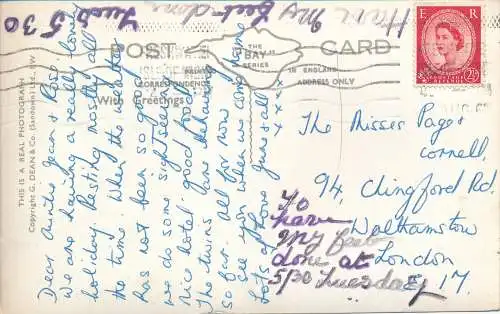 Tues 5 30
My feet done
POST CARD
THE
BAY
SERIES
PRINTED
IN ENGLAND
CORRESPONDENCE
ADDRESS ONLY
With Greetings
THIS IS A REAL PHOTOGRAPH
Copyright G. DEAN & Co. (Sandown) Ltd., IW
E R
2½D
Dear Auntie Jean & Rose.
We are having a really lovely
holiday. Resting mostly all
the time. When the weather
has not been so good
we do some sightseeing.
Nice hotel good food
The twins are behaving
so far. All for now
see you when we come home
Lots of love June & all
x x x x x
The Misses Page &
Cornell.
94, Chingford Rd.
Walthamstow
London
E. 17.
To
have
My feet
done at
5/30 Tuesday